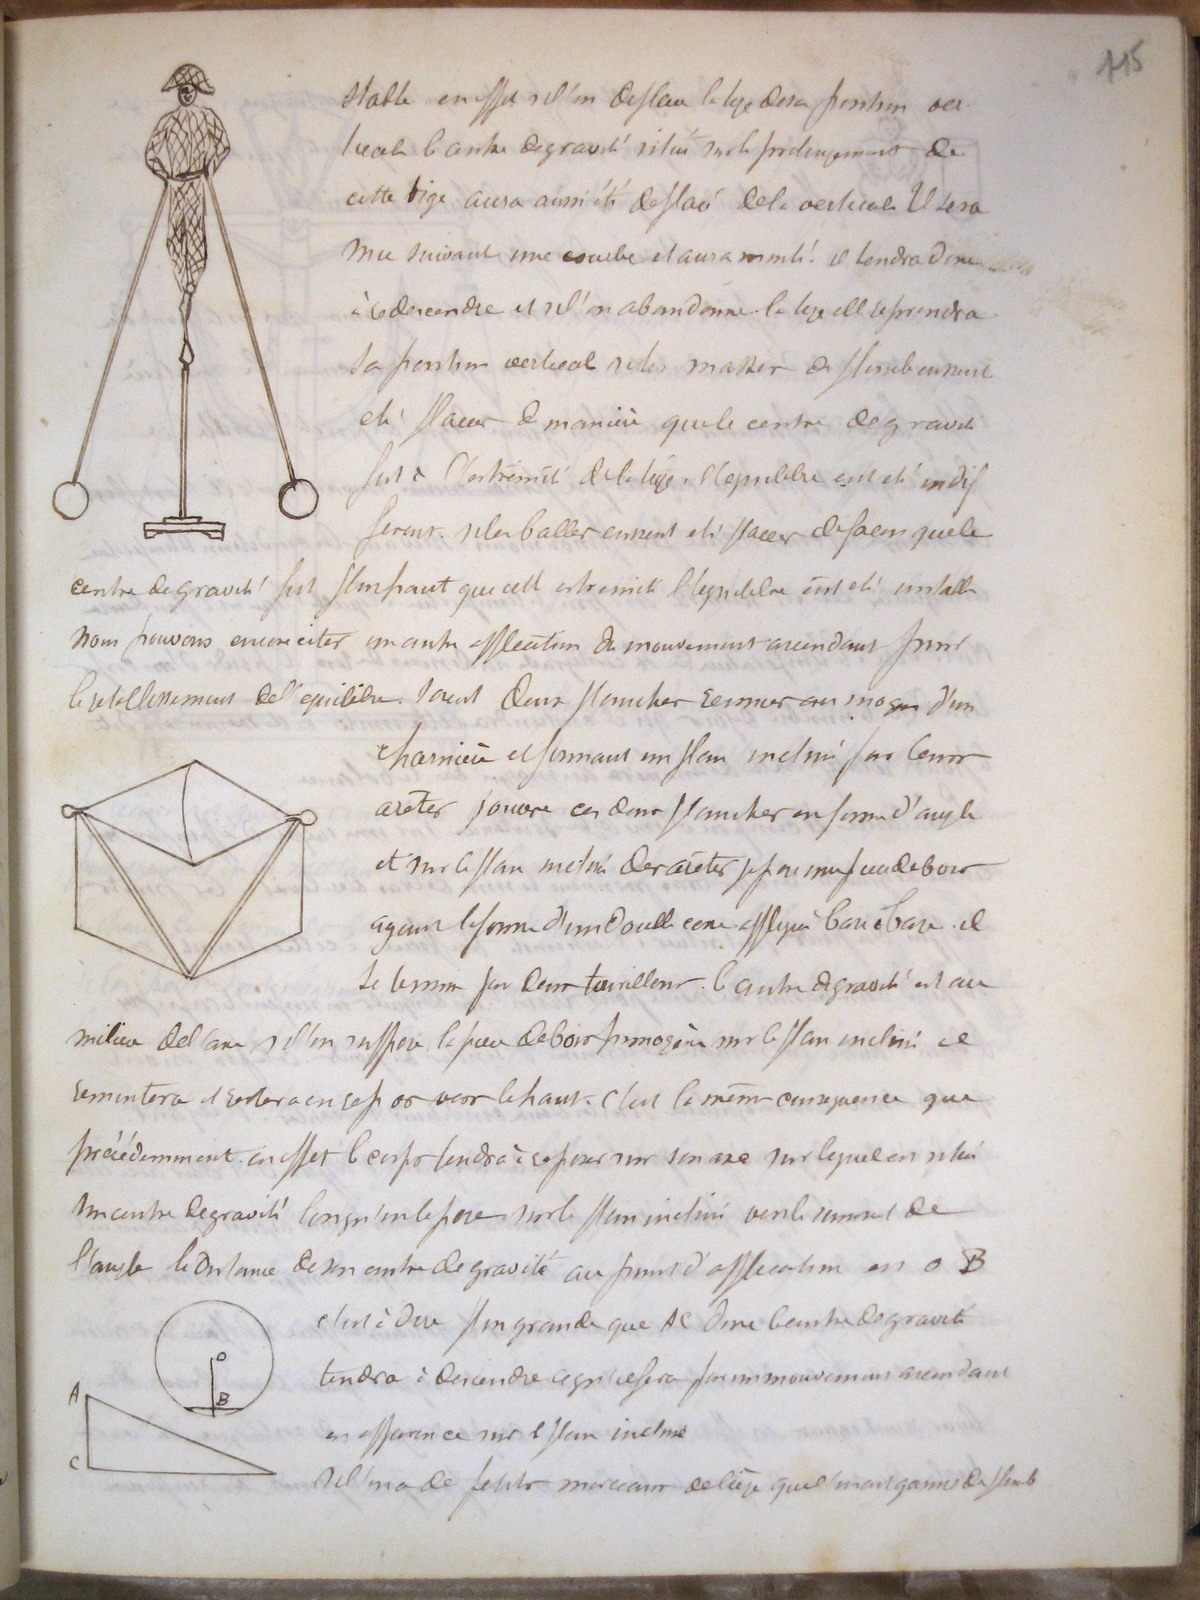 115
stable en effet si l'on deplace la tige de sa position ver-
ticale le centre de gravité situé sur le prolongement de
cette tige aura aussi été deplacé de la verticale Il sera
mu suivant une courbe et aura monté. il tendra donc
à redescendre et si l'on abandonne la tige elle reprendra
sa position vertical si les masses de plomb eussent
été placer de manière que le centre de gravité
fut à l'extrémité de la tige. l'equilibre eut été indif
ferent. si les balles eussent été placer de facon que le
centre de gravité fut plus haut que cette extremité l'equilibre eut été instable
Nous pouvons encore citer un autre application du mouvement ascendant pour
le retablissement de l'equilibre. soient deux plancher reunies au moyen d'un
charnière et formant un plan incliné par leurs
arêtes j'ouvre ces deux plancher en forme d'angle
et sur le plan incliné des arêtes je pose une piece de bois
ayant la forme d'un double cone appliqué base à base. il
se termine par deux tourillons. le centre de gravité est au
milieu de l'axe si l'on suppose la piece de bois homogène sur le plan incliné il
remontera et restera en repos vers le haut. c'est la même consequence que
précédemment. en effet le corps tendra à reposer sur son axe sur lequel est situé
son centre de gravité lorsqu'on le pose sur le plan incliné vers le sommet de
l'angle la distance de son centre de gravité au point d'application est O B
c'est à dire plus grande que AC donc le centre de gravité
tendra à descendre ce qui se fera par un mouvement ascendant
en apparence sur le plan incliné
si l'on a de petits morceaux de liège que l'on ait garnis de plomb
O
B
A
C